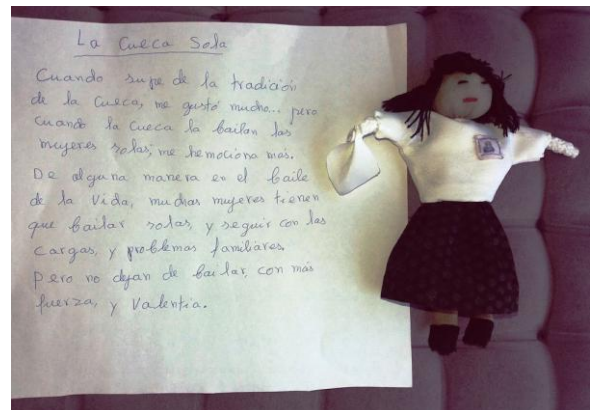 La Cueca Sola
Cuando supe de la tradición
de la Cueca, me gustó mucho... pero
cuando la Cueca la bailan las
mujeres solas, me hemociona más.
De alguna manera en el baile
de la Vida, muchas mujeres tienen
que bailar solas, y seguir con las
cargas, y problemas familiares,
Pero no dejan de bailar, con más
fuerza, y Valentia.